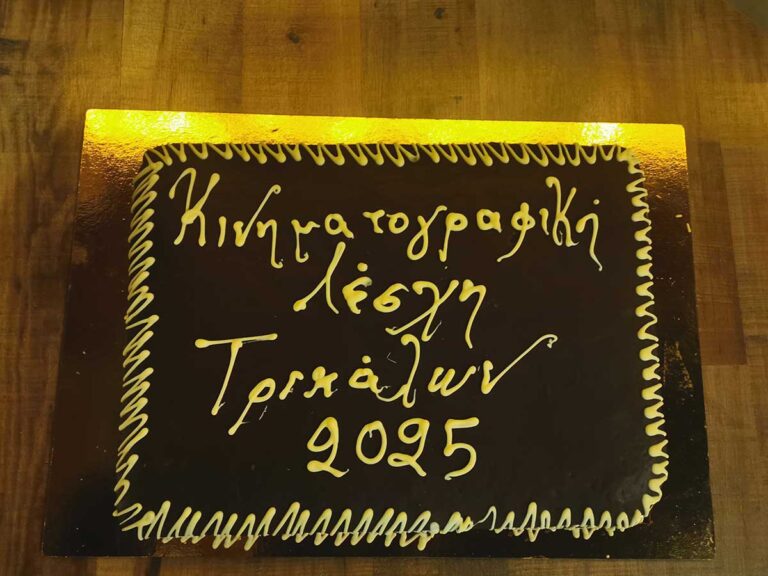 Κινηματογραφική
λέσχη
Τρικάλων
2025